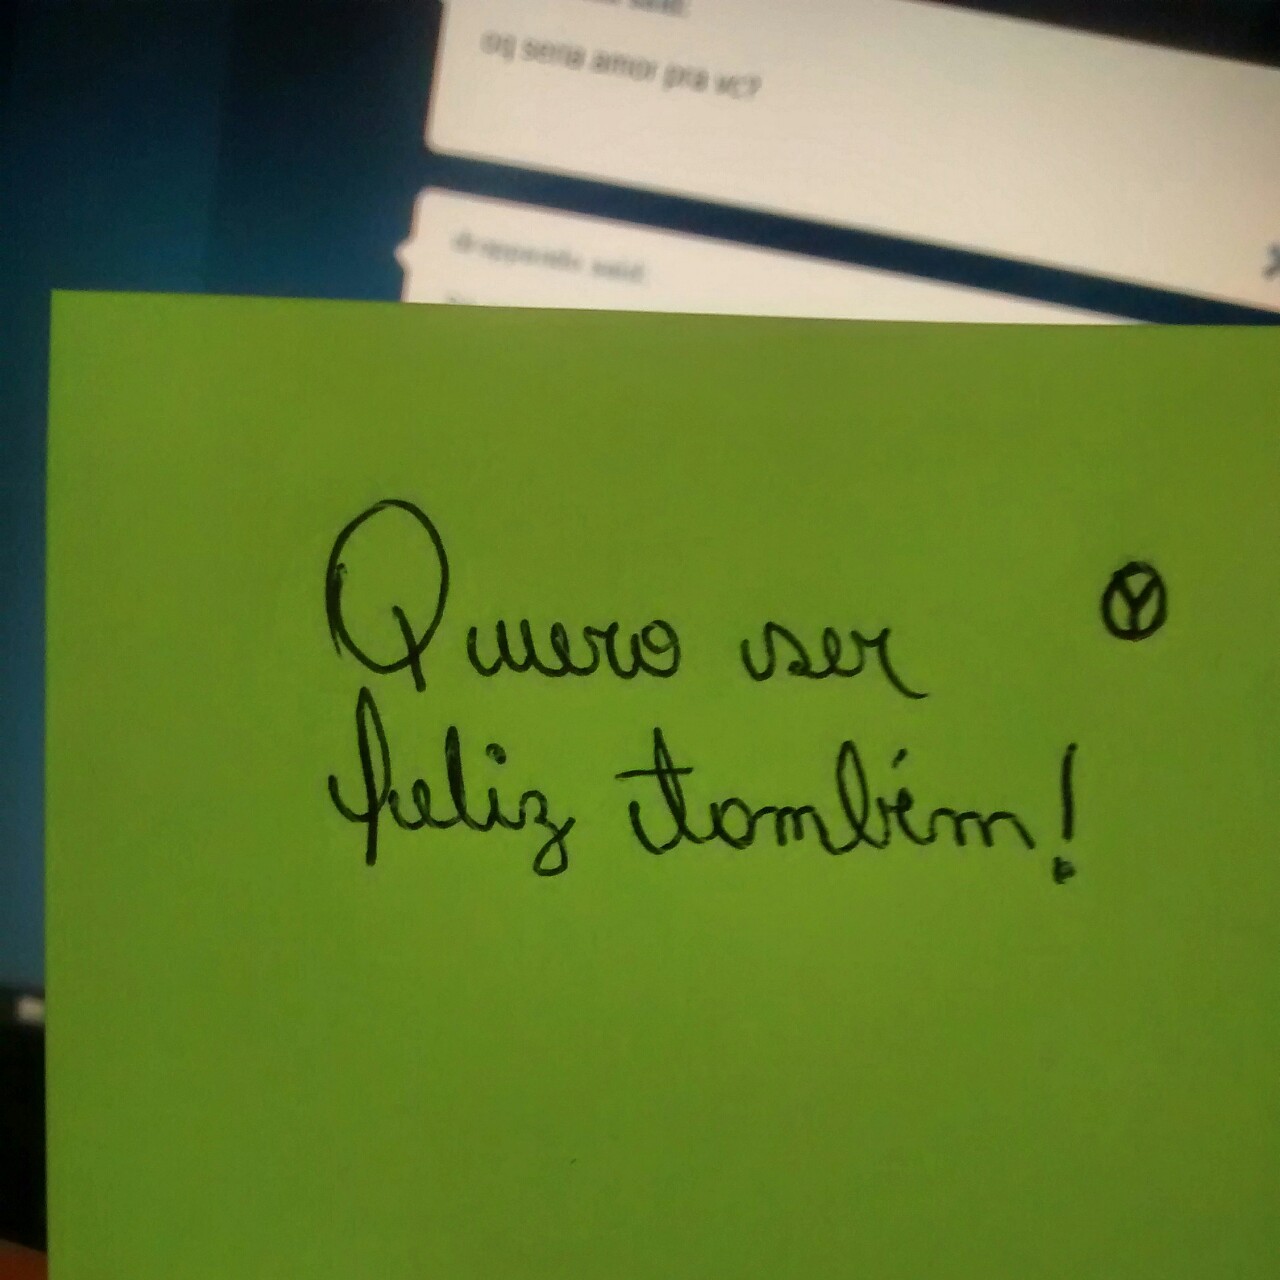 oq seria amor pra vc?
said:
Quero ser
feliz também!
Y